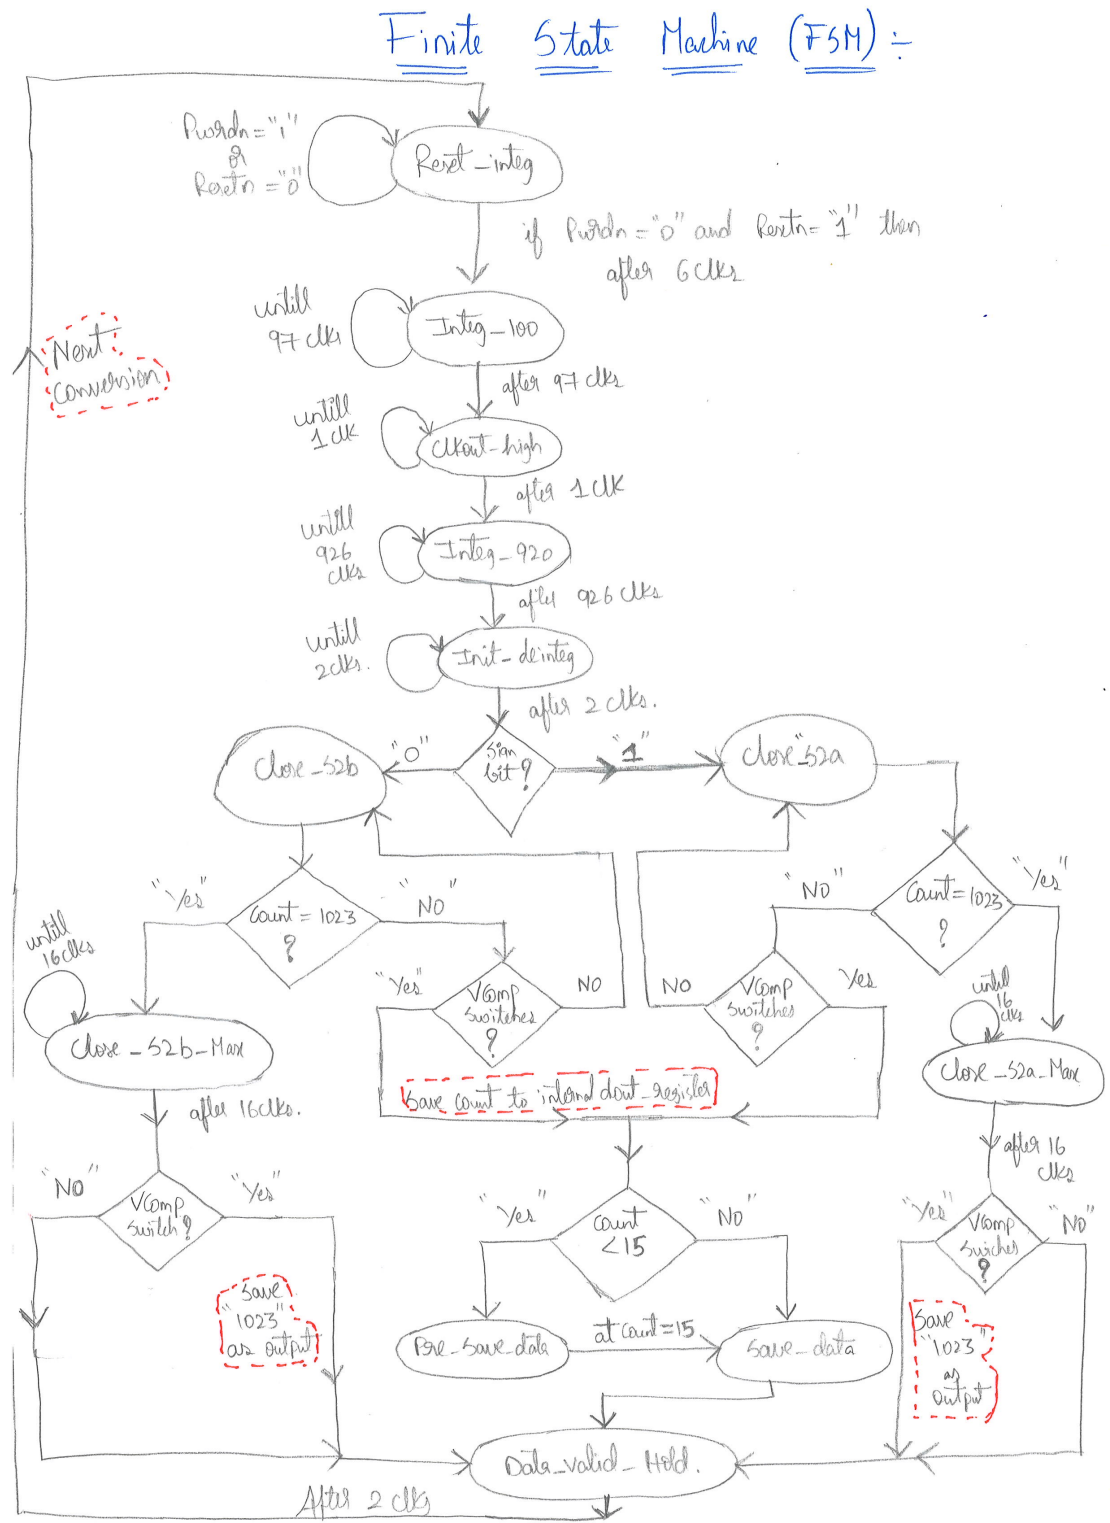 Finite State Machine (FSM) :-
Pwrdn = "1"
or
Resetn = "0"
Reset_integ
if Pwrdn = "0" and Resetn = "1" then
after 6 clks
untill
97 clks
Integ_100
after 97 clks
Next
conversion
untill
1 clk
Clkout_high
after 1 clk
untill
926
clks
Integ_920
after 926 clks
untill
2 clks.
Init_deinteg
after 2 clks.
Close_S2b
"0"
Sign
bit ?
"1"
Close_S2a
"Yes"
Count = 1023
?
"NO"
"NO"
Count = 1023
?
"Yes"
untill
16 clks
"Yes"
VComp
switches
?
NO
NO
VComp
switches
?
Yes
untill
16
clks
Close_S2b_Max
Close_S2a_Max
Save count to internal dout_register
after 16 clks.
after 16
clks
"NO"
VComp
switch ?
"Yes"
"Yes"
Count
<15
"NO"
"Yes"
VComp
swiches
?
"NO"
Save
"1023"
as output
Save
"1023"
as
output
Pre_Save_data
at count = 15
Save_data
Data_valid_Hold.
After 2 clks